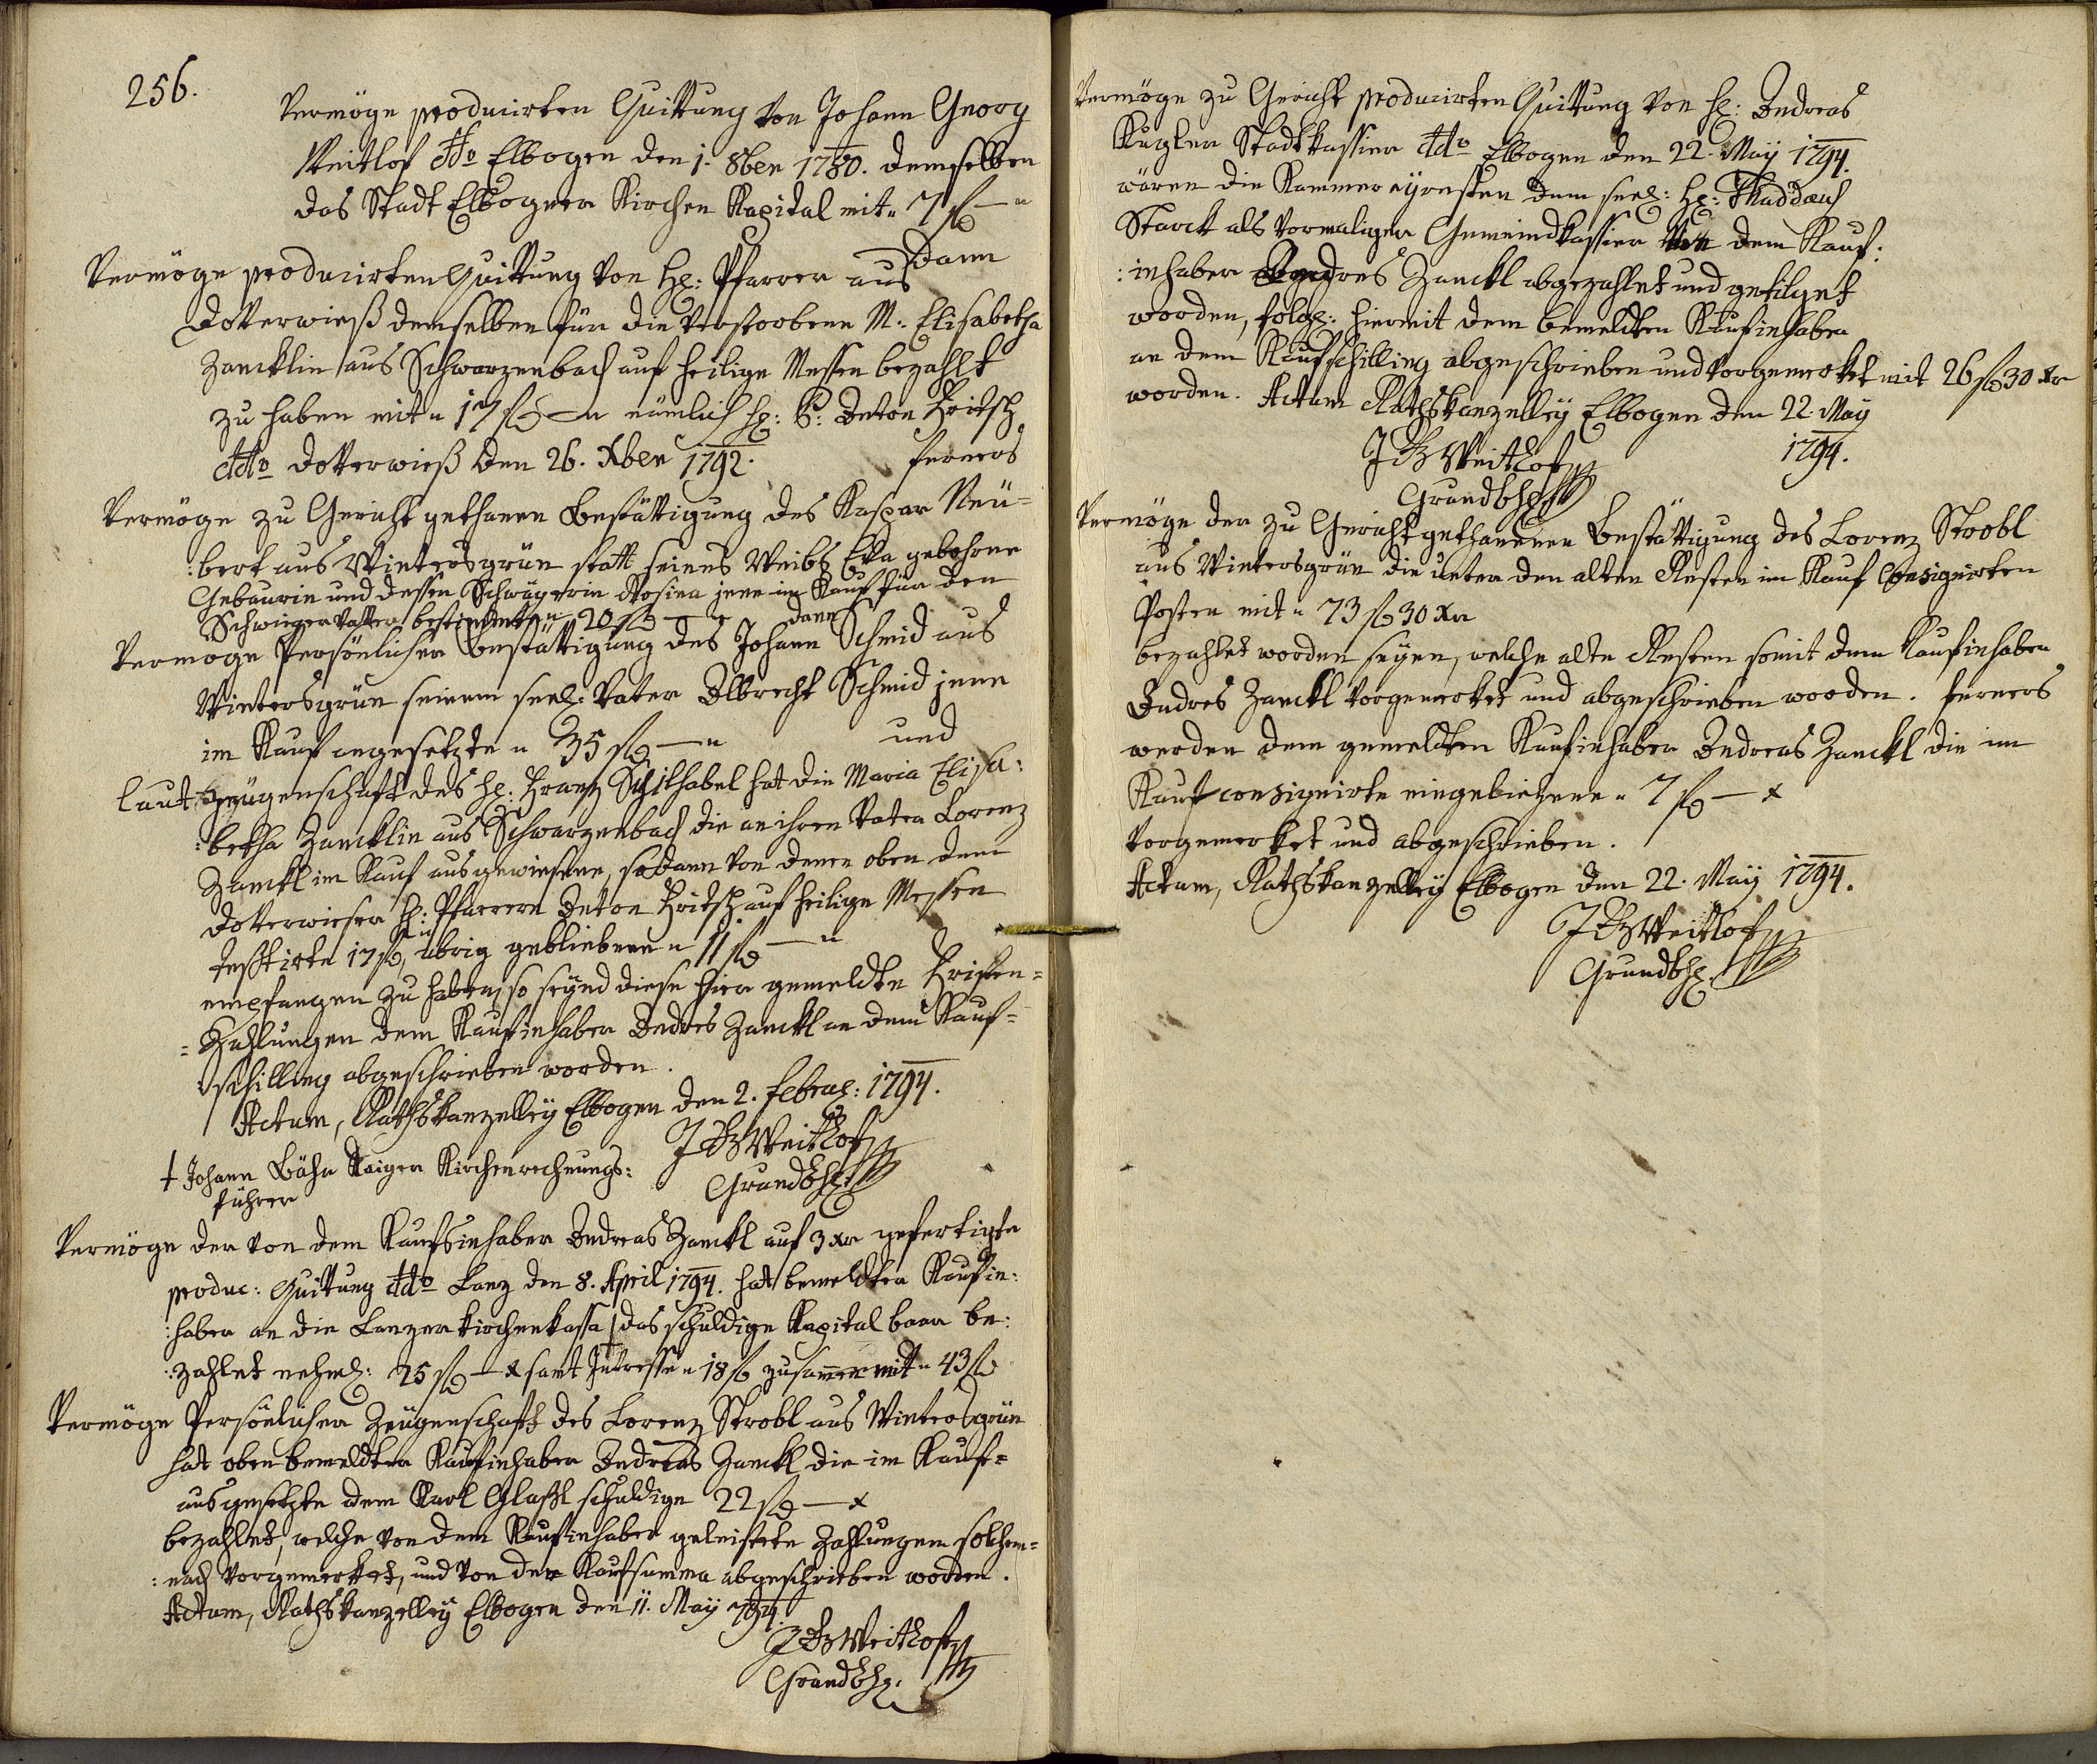 256.
Vermöge producirten Quittung von Johann Georg
Weitlof ddo Elbogen den 1. 8ber 1780. demselben
das Stadt Elbogner Kirchen Kapital mit " 7 f — "
dann
Vermöge producirten Quittung von H: Pfarrer aus
Dotterwieß demselben für die verstorbene M: Elisabetha
Zancklin aus Schwarzenbach auf heilige Messen bezahlt
zu haben mit " 17 f — " nämlich H: P: Anton Fritsch
ddo Dotterwieß den 26. Xber 1792. ferners
Vermöge zu Gericht gethanen Bestättigung des Kaspar Neü=
:bert aus Wintersgrün statt seines Weibs Eva gebohrne
Gebaurin und dessen Schwägerin Rosina jene im Kauf für den
Schwieger Vatter bestimmte " 20 f — " dann
Vermöge Persönlicher Bestättigung des Johann Schmid aus
Wintersgrün seinem seel: Vater Albrecht Schmid jene
im Kauf angesetzte " 35 f — " und
laut Zeügenschaft des H: Franz Schilhabel hat die Maria Elisa:
:betha Zancklin aus Schwarzenbach die an ihren Vater Lorenz
Zanckl im Kauf ausgewiesene, sodann von denen oben dem
Dotterwieser H: Pfarrern Anton Fritsch auf heilige Messen
testirte 17 f, übrig gebliebene " 11 f — "
empfangen zu haben, so seynd diese hier gemeldte Fristen=
=Zahlungen dem Kaufinhaber Andres Zanckl an dem Kauf=
schilling abgeschrieben worden.
Actum, Rathskanzelley Elbogen den 2. Februar: 1794.
J G Weitlof
Grundbh:
† Johann Bähr Kirchenrechnungs:
führer
Vermöge der von dem Kaufsinhaber Andreas Zanckl auf 3 Xr gefertigte
produc: Quittung ddo Lanz den 8. April 1794. hat bemeldter Kaufin:
:haber an die Lanzer Kirchenkassa † das schuldige Kapital baar be:
:zahlet nehml: 25 f — x samt Intresse " 18 f zusammen mit " 43 f
Vermöge Persönlicher Zeügenschaft des Lorenz Strobl aus Wintersgrün
hat oben bemeldter Kaufinhaber Andreas Zanckl die im Kauf=
ausgesetzte dem Karl Glaßl schuldige 22 f — x
bezahlet, welche von dem Kaufinhaber geleistete Zahlungen solchem=
:nach vorgemerket, und von der Kaufsumma abgeschrieben worden.
Actum, Rathskanzelley Elbogen den 11. May 794.
J G Weitlof
Grundbh:
Vermöge zu Gericht producirten Quittung von H: Andreas
Kugler Stadtkassier ddo Elbogen den 22. May 1794.
wären die Kammer aÿresten dem seel: H: Thaddaeus
Starck als vormaligen Gemeindkassier von dem Kauf:
:inhaber Andres Zanckl abgezahlet und getilget
worden, folgl: hiermit dem bemeldten Kaufinhaber
an dem Kaufschilling abgeschrieben und vorgemerket mit 26 f 30 Xr
worden. Actum Rathskanzelley Elbogen den 22. May
1794.
J G Weitlof
Grundbh:
Vermöge der zu Gericht gethanenen Bestättigung des Lorenz Strobl
aus Wintersgrün die unter den alten Resten im Kauf Consignirten
Posten mit " 73 f 30 Xr
bezahlet worden seyen, welche alte Resten somit dem Kaufinhaber
Andres Zanckl vorgemerket und abgeschrieben worden. ferners
werden dem gemeldten Kaufinhaber Andreas Zanckl die im
Kauf consignirte " 7 f — x
vorgemerket und abgeschrieben.
Actum, Rathskanzelley Elbogen den 22. May 1794.
J G Weitlof
Grundbh: